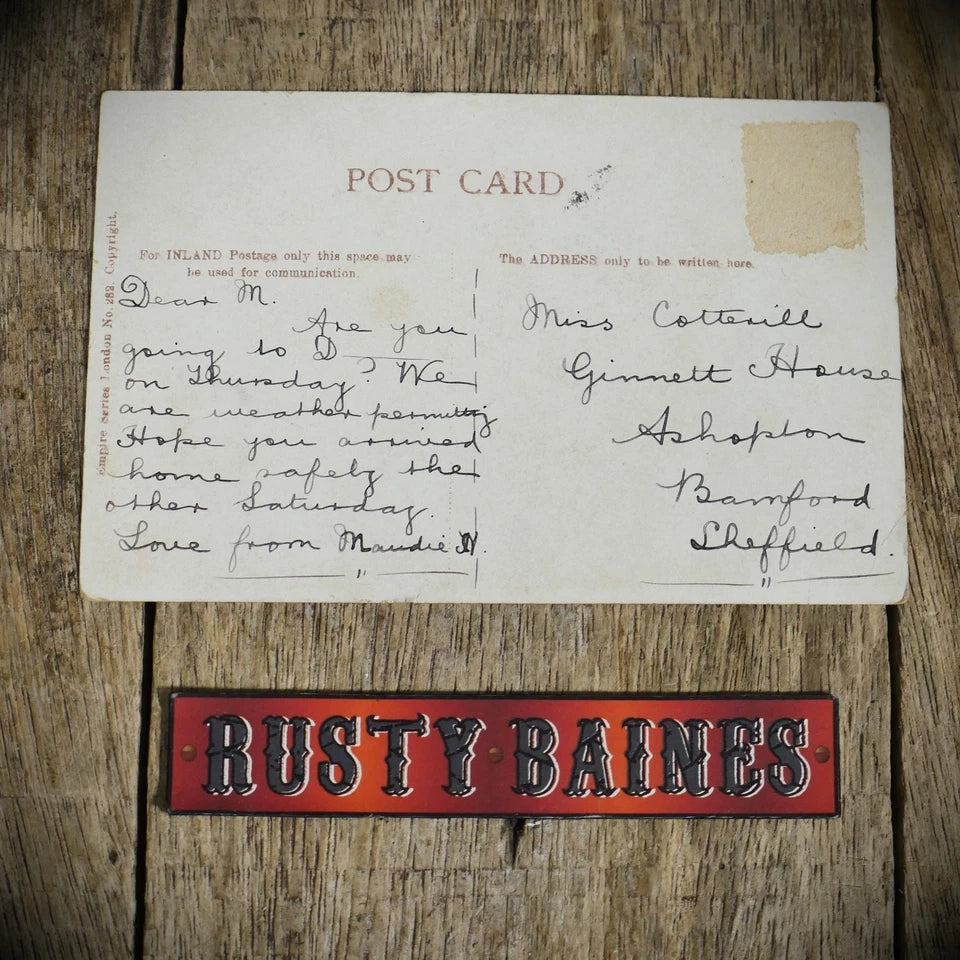 POST CARD
Empire series London No. 282. Copyright.
For INLAND Postage only this space may
be used for communication.
The ADDRESS only to be written here.
Dear M.
Are you
going to D
on Thursday? We
are weather permitting
Hope you arrived
home safely the
other Saturday.
Love from Maudie N.
Miss Cotterill
Ginnett House
Ashopton
Bamford
Sheffield.
RUSTY BAINES